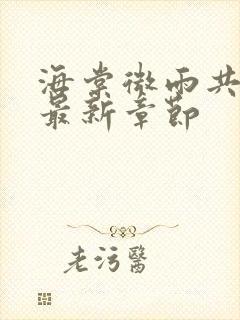 海棠微雨共
最新章節
老污醫